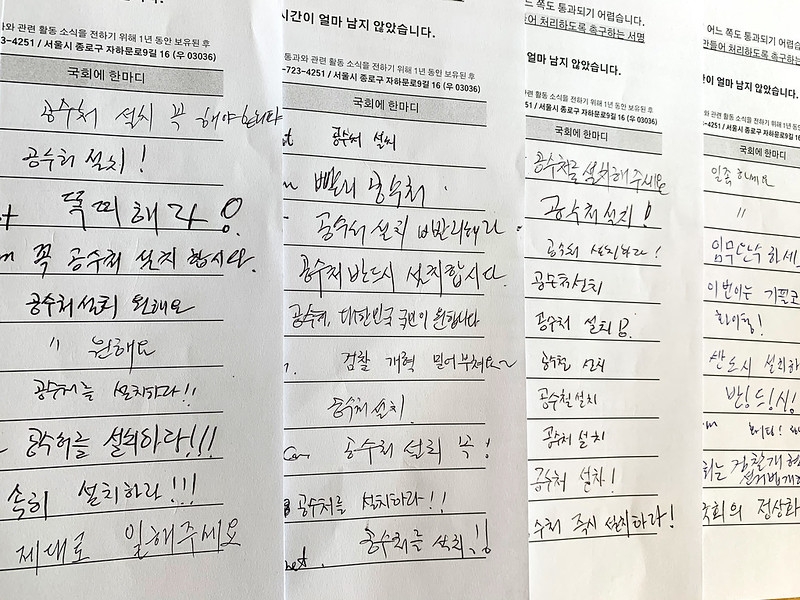 과와 관련 활동 소식을 전하기 위해 1년 동안 보유된 후
3-4251 / 서울시 종로구 자하문로9길 16 (우 03036)
국회에 한마디
공수처 설치 꼭 해야 한다
공수처 설치!
똑띠 해라
꼭 공수처 설치 합시다.
공수처 설치 원해요
〃 원해요
공수처를 설치하라!!
공수처를 설치하라!!!
속히 설치하라!!!
제대로 일해주세요
시간이 얼마 남지 않았습니다.
통과와 관련 활동 소식을 전하기 위해 1년 동안 보유된 후
-723-4251 / 서울시 종로구 자하문로9길 16 (우 03036)
국회에 한마디
공수처 설치
빨리 공수처
공수처 설치 빨리해라
공수처 반드시 설치합시다.
공수처, 대한민국 국민이 원합니다
검찰 개혁 밀어부쳐요~
공수처 설치.
공수처 설치 꼭!
공수처를 설치하라!!
공수처를 설치!!
느 쪽도 통과되기 어렵습니다.
들어 처리하도록 촉구하는 서명
얼마 남지 않았습니다.
관련 활동 소식을 전하기 위해 1년 동안 보유된 후
4251 / 서울시 종로구 자하문로9길 16 (우 03036)
국회에 한마디
공수처를 설치해주세요
공수처 설치!
공수처 설치하라!
공수처 설치
공수처 설치
공수철 설치
공수철 설치
공수처 설치
공수처 설치!
수처 즉시 설치하라!
어느 쪽도 통과되기 어렵습니다.
만들어 처리하도록 촉구하는
이 얼마 남지 않았습니다.
관련 활동 소식을 전하기 위해 1년 동안
4251 / 서울시 종로구 자하문로9길 16
국회에 한마디
일좀 하세요
〃
임무완수 하세
이번이는
화이팅!
반드시 설치하
반드시!
는 검찰개혁
선거법개
국회의 정상화